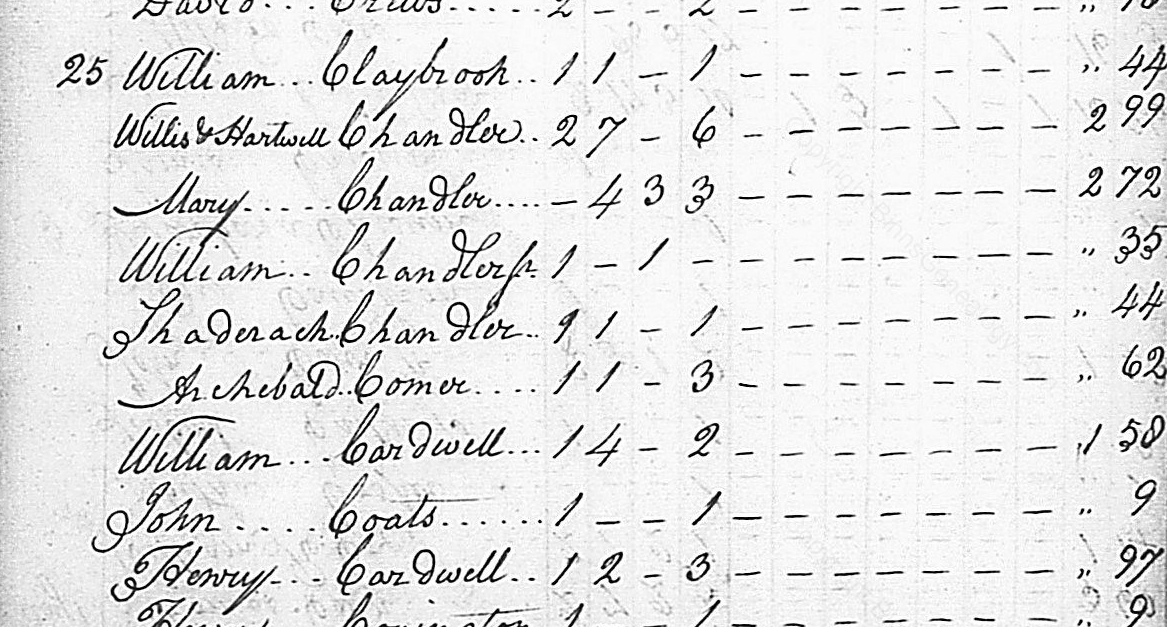 David... Crews..... 2 - - 2 - - - - - - - " 18
25 William... Claybrook.. 1 1 - 1 - - - - - - - " 44
Willis & Hartwell Chandler.. 2 7 - 6 - - - - - - - 2 99
Mary..... Chandler.... - 4 3 3 - - - - - - - 2 72
William.. Chandler Jr. 1 - 1 - - - - - - - - " 35
Shaderach. Chandler.. 1 1 - 1 - - - - - - - " 44
Archebald.. Comer.... 1 1 - 3 - - - - - - - " 62
William... Cardwell... 1 4 - 2 - - - - - - - 1 58
John.... Coats...... 1 - - 1 - - - - - - - " 9
Henry... Cardwell.. 1 2 - 3 - - - - - - - " 97
Covington 1 - - 1 - - - - - - - " 9